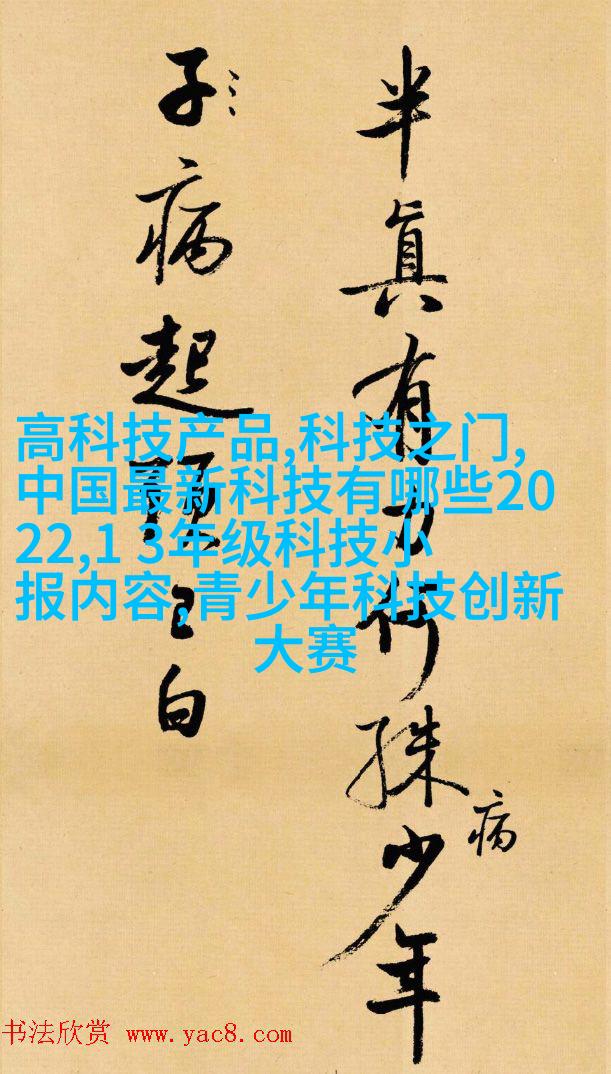 半眞有行殊少年
病
子病起已白
高科技产品,科技之门,
中国最新科技有哪些20
22,1 3年级科技小
报内容,青少年科技创新
大赛
书法欣赏 www.yac8.com